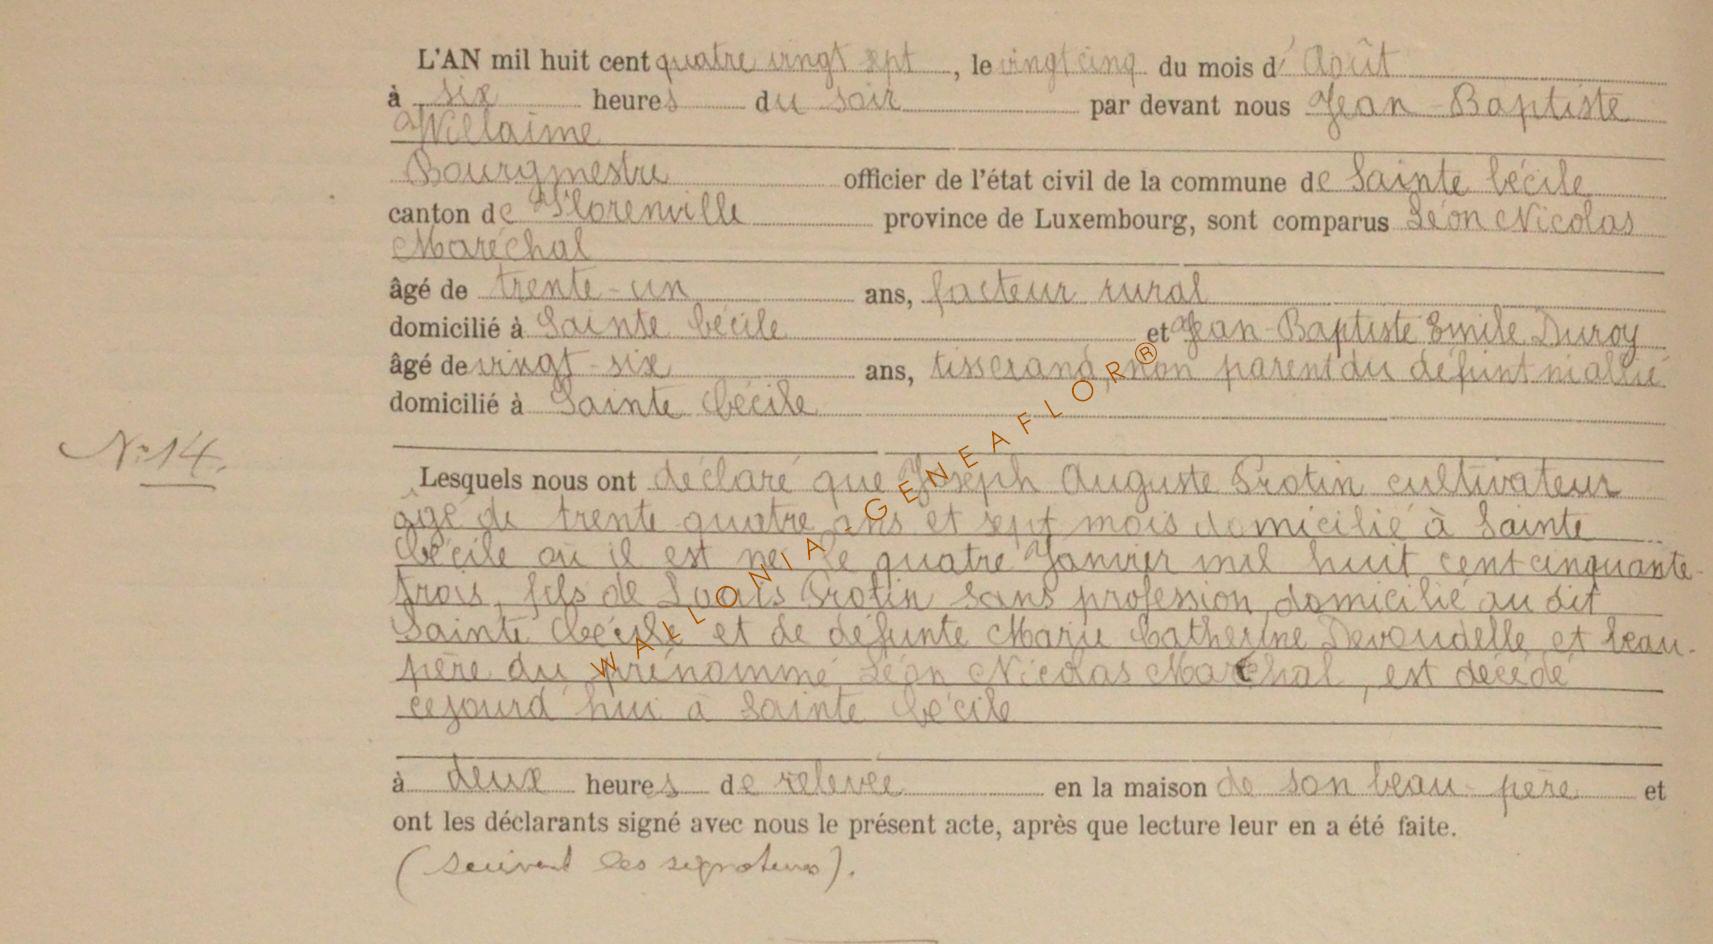 L'AN mil huit cent quatre vingt sept, le vingt cinq du mois d' Août
à six heures du soir par devant nous Jean-Baptiste
Willaime
Bourgmestre officier de l'état civil de la commune de Sainte Cécile
canton de Florenville province de Luxembourg, sont comparus Léon Nicolas
Maréchal
âgé de trente-un ans, facteur rural
domicilié à Sainte Cécile et Jean-Baptiste Emile Duroy
âgé de vingt-six ans, tisserand, non parent du défunt ni allié
domicilié à Sainte Cécile
N° 14.
Lesquels nous ont déclaré que Joseph Auguste Protin cultivateur
âgé de trente quatre ans et sept mois domicilié à Sainte
Cécile où il est né le quatre Janvier mil huit cent cinquante-
trois, fils de Louis Protin sans profession domicilié au dit
Sainte Cécile et de défunte Marie Catherine Devoudelle et beau-
père du prénommé Léon Nicolas Maréchal, est décédé
cejourd'hui à Sainte Cécile
à deux heures de relevée en la maison de son beau-père et
ont les déclarants signé avec nous le présent acte, après que lecture leur en a été faite.
(suivent les signatures).
WALLONIA-GENEAFLOR®